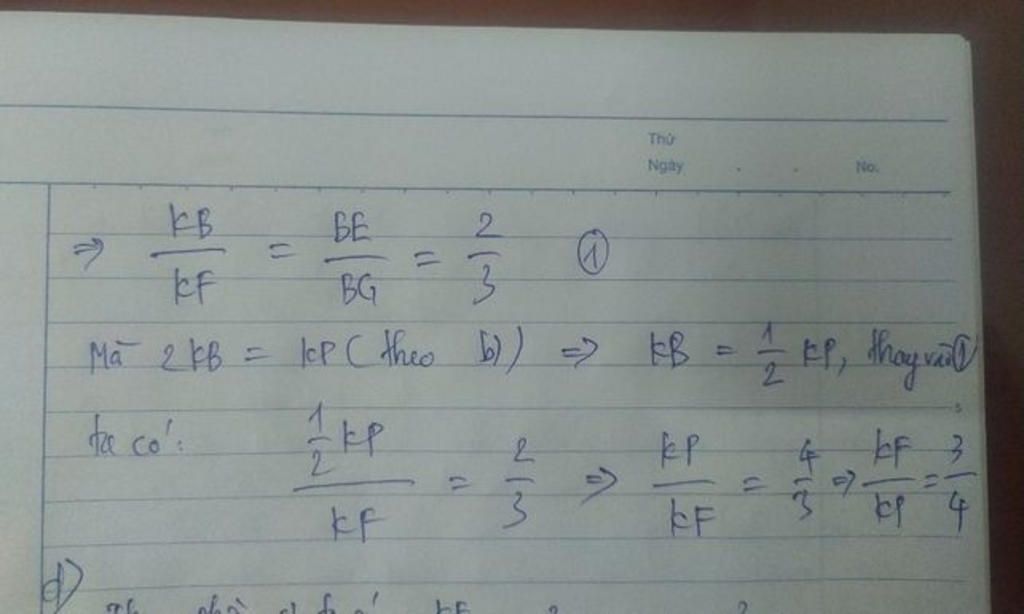 Thứ
Ngày . . No.
⇒ KB/KF = BE/BG = 2/3 ①
Mà 2KB = KP (theo b)) ⇒ KB = 1/2 KP, thay vào ①
ta có: (1/2 KP)/KF = 2/3 ⇒ KP/KF = 4/3 ⇒ KF/KP = 3/4
d)